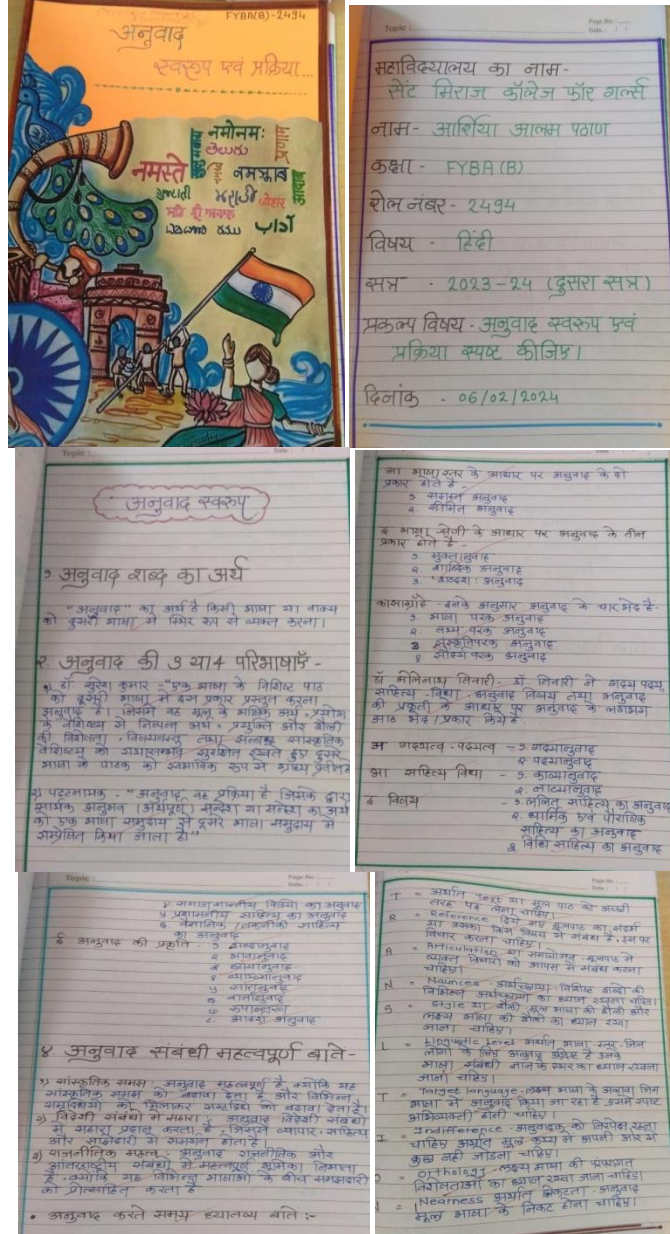 FYBA(B)-2494
अनुवाद
स्वरूप एवं प्रक्रिया...
नमोनमः
नमस्ते
తెలుగు
प्रणाम
ગુજરાતી
मराठी
जोहार
आदाब
Topic :
Page No. :
Date : / /
महाविदयालय का नाम-
सेंट मिराज कॉलेज फॉर गर्ल्स
नाम- आर्शिया आलम पठाण
कक्षा - FYBA (B)
रोल नंबर - 2494
विषय - हिंदी
सत्र - 2023-24 (दुसरा सत्र)
प्रकल्प विषय - अनुवाद स्वरूप एवं
प्रक्रिया स्पष्ट कीजिए।
दिनांक - 06/02/2024
Topic :
अनुवाद स्वरूप
१ अनुवाद शब्द का अर्थ
"अनुवाद" का अर्थ है किसी भाषा या वाक्य
को दुसरी भाषा में स्थिर रूप से व्यक्त करना।
२. अनुवाद की 3 या 4 परिभाषाएँ -
१) डॉ. सुरेश कुमार - "एक भाषा के विशिष्ट पाठ
को दूसरी भाषा में इस प्रकार प्रस्तुत करना
अनुवाद है। जिसमें वह मूल के भाषिक अर्थ, प्रयोग
के वैशिष्टय से निष्पन्न अर्थ, प्रयुक्ति और शैली
की विशेषता, विषयवस्तु तथा सांस्कृतिक
वैशिष्टय को यथासम्भव सुरक्षित रखते हुए दुसरे
भाषा के पाठक को स्वभाविक रूप से ग्राह्य प्रतीत
२) पट्टनायक - "अनुवाद वह प्रक्रिया है जिसके द्वारा
सार्थक अनुभव (अर्थपूर्ण) सन्देश या सन्देश का अर्थ
को एक भाषा समुदाय से दूसरे भाषा समुदाय में
सम्प्रेषित किया जाता है।"
आ भाषा स्तर के आधार पर अनुवाद के दो
प्रकार होते है
१ समस्त अनुवाद
२. सीमित अनुवाद
इ भाषा श्रेणी के आधार पर अनुवाद के तीन
प्रकार होते है -
१. मुक्तानुवाद
२. शाब्दिक अनुवाद
३. शब्दशः अनुवाद
कासाग्रांदे - इनके अनुसार अनुवाद के चार भेद है-
१. भाषा परक अनुवाद
२. तथ्य परक अनुवाद
३ संस्कृतिपरक अनुवाद
४ सौंदर्य परक अनुवाद
डॉ. भोलेनाथ तिवारी- डॉ. तिवारी ने गदय पदय,
साहित्य-विधा, अनुवाद विषय तथा अनुवाद
की प्रकृती के आधार पर अनुवाद के लगभग
आठ भेद/प्रकार किये है
अ गदयत्व-पदयत्व - १. गदयानुवाद
२ पदयानुवाद
आ साहित्य विधा - १. काव्यानुवाद
२. नाट्यानुवाद
इ विषय - १. ललित साहित्य का अनुवाद
२. धार्मिक एवं पौराणिक
साहित्य का अनुवाद
३ विधि साहित्य का अनुवाद
Topic :
Page No. :
Date : / /
४. समाजशास्त्रीय विषयों का अनुवाद
५ प्रशासनीय साहित्य का अनुवाद
६ वैज्ञानिक /तकनीकी साहित्य
का अनुवाद
ई अनुवाद की प्रकृति - १ शब्दानुवाद
२ भावानुवाद
३ छायानुवाद
४. व्याख्यानुवाद
५ सारानुवाद
६ वार्तानुवाद
७ रूपान्तरण
८. आदर्श अनुवाद
४. अनुवाद संबंधी महत्वपूर्ण बाते-
१) सांस्कृतिक समझ - अनुवाद महत्वपूर्ण है क्योंकि यह
सांस्कृतिक समझ को बढ़ावा देता है और विभिन्न
समृद्धियों को मिलाकर समृद्धि को बढ़ावा देता है।
२) विदेशी संबंधों में सहारा - अनुवाद विदेशी संबंधों
में सहारा प्रदान करता है, जिससे व्यापार, साहित्य
और साझेदारी में समर्थन होता है।
३) राजनीतिक महत्व - अनुवाद राजनीतिक और
आंतरराष्ट्रीय संबंधों में महत्वपूर्ण भूमिका निभाता
है, क्योंकि यह विभिन्न भाषाओं के बीच समझदारी
को प्रोत्साहित करता है
• अनुवाद करते समय ध्यानव्य बाते :-
Page No. :
Date : / /
T = अर्थात Text या मूल पाठ को अच्छी
तरह पढ़ लेना चाहिए।
R = Reference दिये गए मूलपाठ का संदर्भ
या उसका किस विषय से संबंध है, इस पर
विचार करना चाहिए।
A = Articulation या समायोजन - मूलपाठ में
व्यक्त विचारों को आपस में संबंध करना
चाहिए।
N = Naunces - अर्थच्छाया - विशिष्ट शब्दों की
विभिन्न अर्थच्छाया का ध्यान रखना चाहिए।
S = Style या शैली, मूल भाषा की शैली और
लक्ष्य भाषा की शैली का ध्यान रखा
जाना चाहिए।
L = Linguistic Level अर्थात भाषा-स्तर- जिन
लोगो के लिए अनुवाद अपेक्षित है उनके
भाषा संबंधी ज्ञान के स्तर का ध्यान रखना
जाना चाहिए।
T = Target Language - लक्ष्य भाषा के अलावा जिस
भाषा में अनुवाद किया जा रहा है उसमे स्पष्ट
अभिव्यक्ती होनी चाहिए।
I = Indifference - अनुवादक को निरपेक्ष रहना
चाहिए अर्थात मूल कथ्य में अपनी ओर से
कुछ नही जोड़ना चाहिए।
O = Orthology - लक्ष्य भाषा की परंपरागत
विशेषताओं का ध्यान रखा जाना चाहिए।
N = Nearness अर्थात निकटता - अनुवाद
मूल भाषा के निकट होना चाहिए।